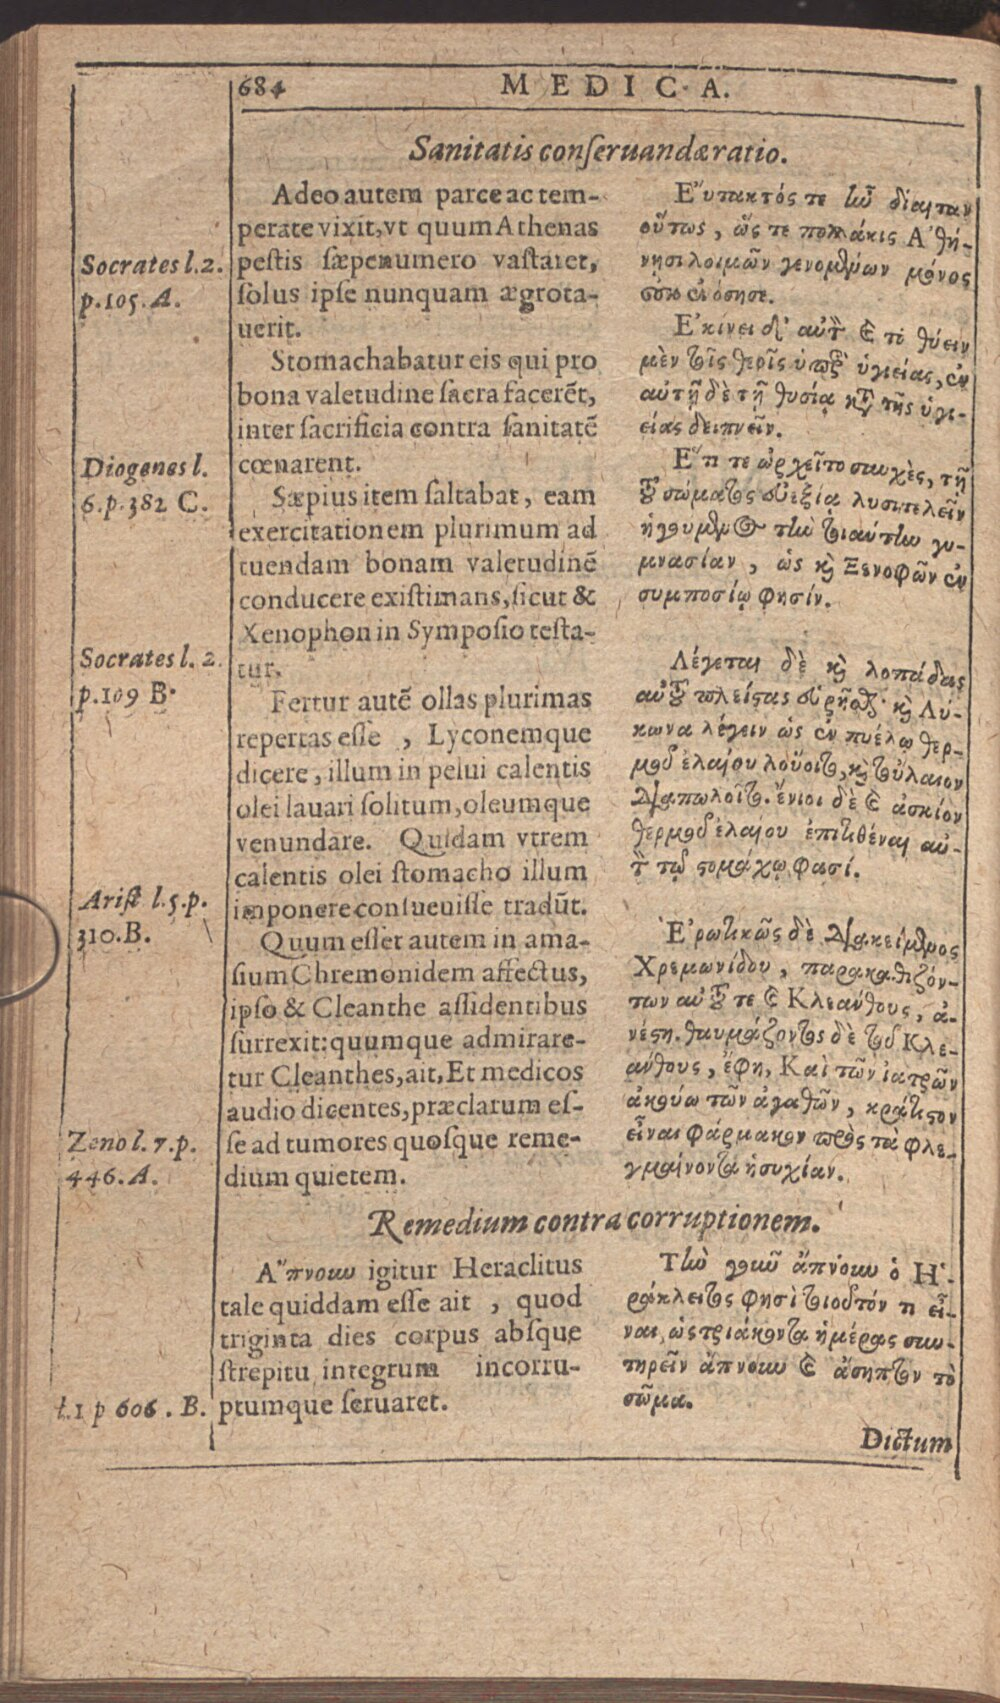 684
MEDICA.
Sanitatis conseruandæ ratio.
Socrates l. 2.
p. 105. A.
Diogenes l.
6. p. 382 C.
Socrates l. 2.
p. 109 B.
Arist l. 5. p.
310. B.
Zeno l. 7. p.
446. A.
l. 1 p 606. B.
Adeo autem parce ac tem-
perate vixit, vt quum Athenas
pestis sæpenumero vastaret,
solus ipse nunquam ægrota-
uerit.
Stomachabatur eis qui pro
bona valetudine sacra facerẽt,
inter sacrificia contra sanitatẽ
cœnarent.
Sæpius item saltabat, eam
exercitationem plurimum ad
tuendam bonam valetudinẽ
conducere existimans, sicut &
Xenophon in Symposio testa-
tur.
Fertur autẽ ollas plurimas
repertas esse, Lyconemque
dicere, illum in pelui calentis
olei lauari solitum, oleumque
venundare. Quidam vtrem
calentis olei stomacho illum
imponere consueuisse tradũt.
Quum esset autem in ama-
sium Chremonidem affectus,
ipso & Cleanthe assidentibus
surrexit: quumque admirare-
tur Cleanthes, ait, Et medicos
audio dicentes, præclarum es-
se ad tumores quosque reme-
dium quietem.
Εὔτακτός τε ἦν δίαιταν
οὕτως, ὥς τε πολλάκις Ἀθή-
νησι λοιμῶν γενομένων μόνος
οὐκ ἐνόσησε.
Ἐκίνει δ' αὐτὸν καὶ τὸ θύειν
μὲν τοῖς θεοῖς ὑπὲρ ὑγιείας, ἐν
αὐτῇ δὲ τῇ θυσίᾳ κατὰ τῆς ὑγι-
είας δειπνεῖν.
Ἔτι τε ὠρχεῖτο συνεχὲς, τῇ
τοῦ σώματος εὐεξίᾳ λυσιτελεῖν
ἡγούμενος τὴν τοιαύτην γυ-
μνασίαν, ὡς καὶ Ξενοφῶν ἐν
συμποσίῳ φησίν.
Λέγεται δὲ καὶ λοπάδας
αὐτοῦ πλείστας εὑρῆσθαι· καὶ Λύ-
κωνα λέγειν ὡς ἐν πυέλῳ θερ-
μοῦ ἐλαίου λούοιτο, καὶ τοὔλαιον
διαπωλοῖτο. ἔνιοι δὲ καὶ ἀσκίον
θερμοῦ ἐλαίου ἐπιτιθέναι αὐ-
τὸν τῷ στομάχῳ φασί.
Ἐρωτικῶς δὲ διακείμενος
Χρεμωνίδου, παρακαθιζόν-
των αὐτοῦ τε καὶ Κλεάνθους, ἀ-
νέστη. θαυμάζοντος δὲ τοῦ Κλε-
άνθους, ἔφη, Καὶ τῶν ἰατρῶν
ἀκούω τῶν ἀγαθῶν, κράτιστον
εἶναι φάρμακον πρὸς τὰ φλε-
γμαίνοντα ἡσυχίαν.
Remedium contra corruptionem.
Ἄπνουν igitur Heraclitus
tale quiddam esse ait, quod
triginta dies corpus absque
strepitu integrum incorru-
ptumque seruaret.
Τὴν γοῦν ἄπνουν ὁ Ἡ-
ράκλειτος φησὶ τοιοῦτόν τι εἶ-
ναι, ὡς τριάκοντα ἡμέρας συν-
τηρεῖν ἄπνουν καὶ ἄσηπτον τὸ
σῶμα.
Dictum